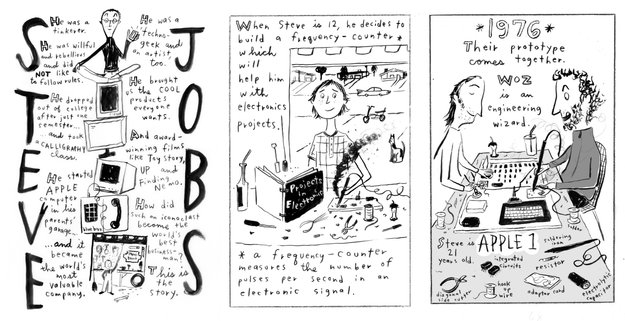 STEVE
JOBS
He was a
tinkerer.
He was willful
and rebellious
and did
NOT like
to follow rules.
He dropped
out of college
after just one
semester...
...and took
a CALLIGRAPHY
class.
He started
APPLE
computer
in his
parents'
garage...
...and it
became
the world's
most
valuable
company.
He was a
techno-
geek and
an artist
too.
He brought
us the COOL
products
everyone
wants.
And award-
winning films
like Toy Story,
UP and
Finding
Nemo.
How did
such an iconoclast
become the
world's
best
business
man?
This is
the
story.
When Steve is 12, he decides to
build a frequency-counter*
which
will
help him
with
electronics
projects.
Projects
in
Electronics
* a frequency-counter
measures the number of
pulses per second in an
electronic signal.
*1976*
Their prototype
comes together.
Woz
is an
engineering
wizard.
Steve is
21
years old.
APPLE 1
diagonal
side cutter
integrated
circuits
hook
up
wire
soldering
iron
resistor
adapter cord
electrolytic
capacitor